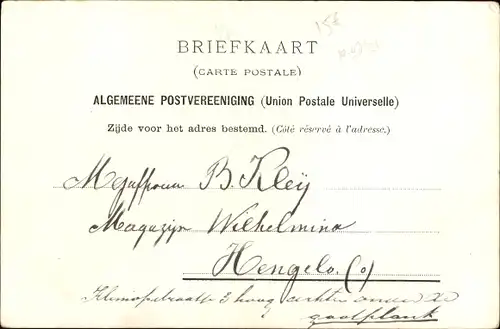 15€
BRIEFKAART
(CARTE POSTALE)
ALGEMEENE POSTVEREENIGING (Union Postale Universelle)
Zijde voor het adres bestemd. (Côté réservé à l'adresse.)
Mejuffrouw B. Kleÿ
Magazijn Wilhelmina
Hengelo. (O)
3 hoog achter onder de
gootplank